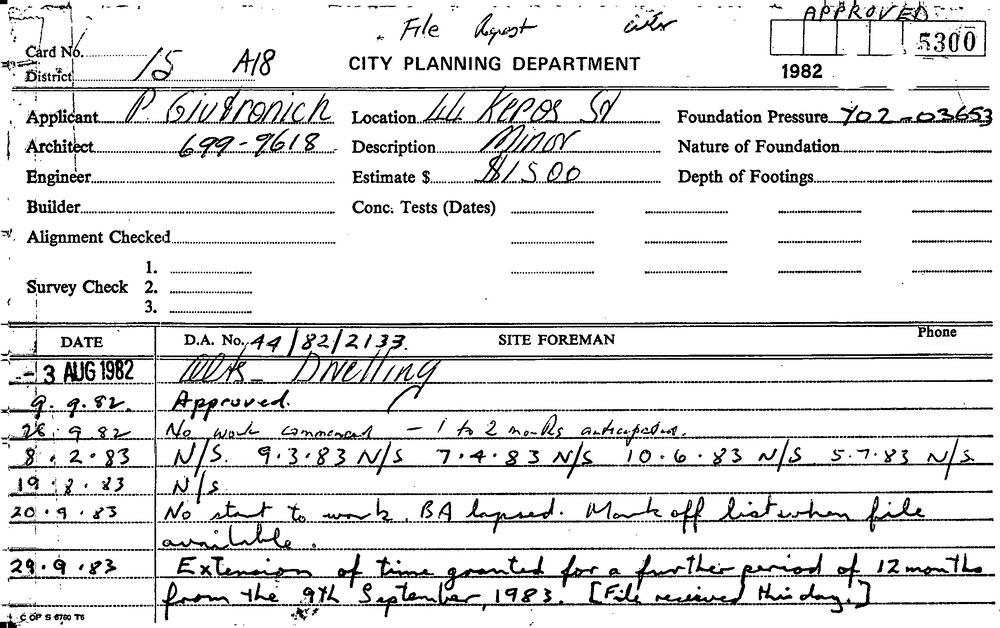 File Report APPROVED
Card No. 5300
District 15 A18 CITY PLANNING DEPARTMENT 1982
Applicant P. Giutronich Location 44 Kepos St Foundation Pressure Y02-03653
Architect 699-9618 Description Minor Nature of Foundation
Engineer Estimate $ $1500 Depth of Footings
Builder Conc. Tests (Dates)
Alignment Checked
1.
Survey Check 2.
3.
DATE D.A. No. 44/82/2133. SITE FOREMAN Phone
- 3 AUG 1982 Alts - Dwelling
9. 9.82. Approved.
28 9.82 No work commenced - 1 to 2 months anticipated.
8.2.83 N/S. 9.3.83 N/S 7.4.83 N/S 10.6.83 N/S 5.7.83 N/S
19.8.83 N/S
20.9.83 No start to work. BA lapsed. Mark off list when file
available.
29.9.83 Extension of time granted for a further period of 12 months
from the 9th September, 1983. [File received this day.]
C OP S 6760 T6